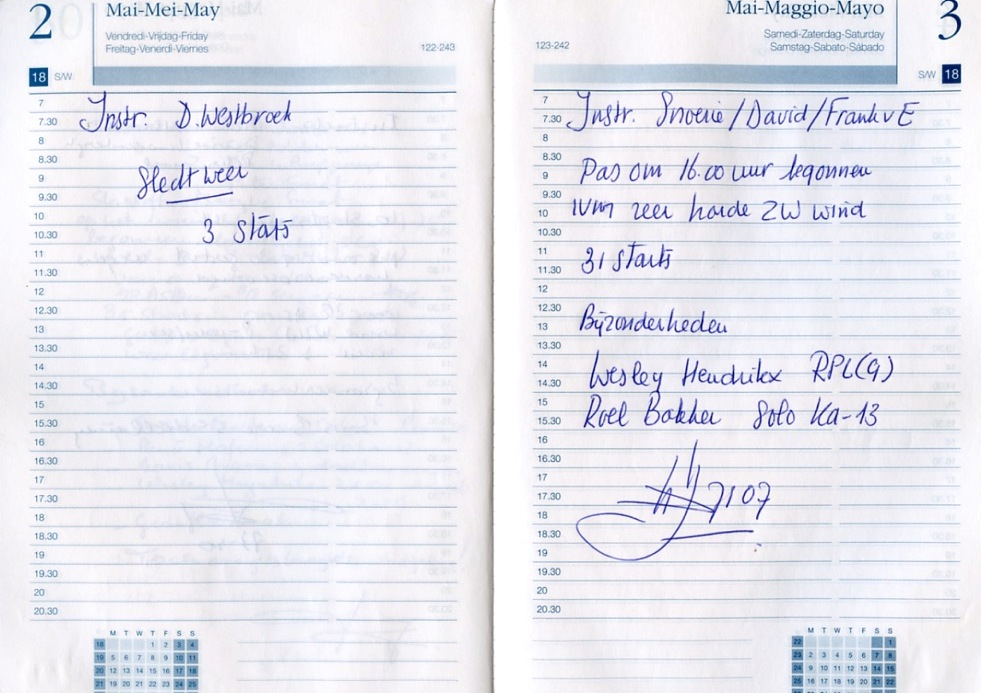 2
Mai-Mei-May
Vendredi-Vrijdag-Friday
Freitag-Venerdi-Viernes
122-243
18 S/W
7
7.30 Instr. D. Westbroek
8
8.30
9 Slechtweer
9.30
10
10.30 3 Starts
11
11.30
12
12.30
13
13.30
14
14.30
15
15.30
16
16.30
17
17.30
18
18.30
19
19.30
20
20.30
M T W T F S S
18 1 2 3 4
19 5 6 7 8 9 10 11
20 12 13 14 15 16 17 18
21 19 20 21 22 23 24 25
Mai-Maggio-Mayo
3
Samedi-Zaterdag-Saturday
Samstag-Sabato-Sábado
123-242
S/W 18
7
7.30 Instr. /David/Frank v E
8
8.30
9 Pas om 16.00 uur begonnen
9.30
10 IVM zeer harde ZW wind
10.30
11
11.30 31 Starts
12
12.30
13 Bijzonderheden
13.30
14
14.30 Wesley Hendrikx RPL(G)
15
15.30 Roel Bakker Solo Ka-13
16
16.30
17
17.30 7107
18
18.30
19
19.30
20
20.30
M T W T F S S
22 1
23 2 3 4 5 6 7 8
24 9 10 11 12 13 14 15
25 16 17 18 19 20 21 22